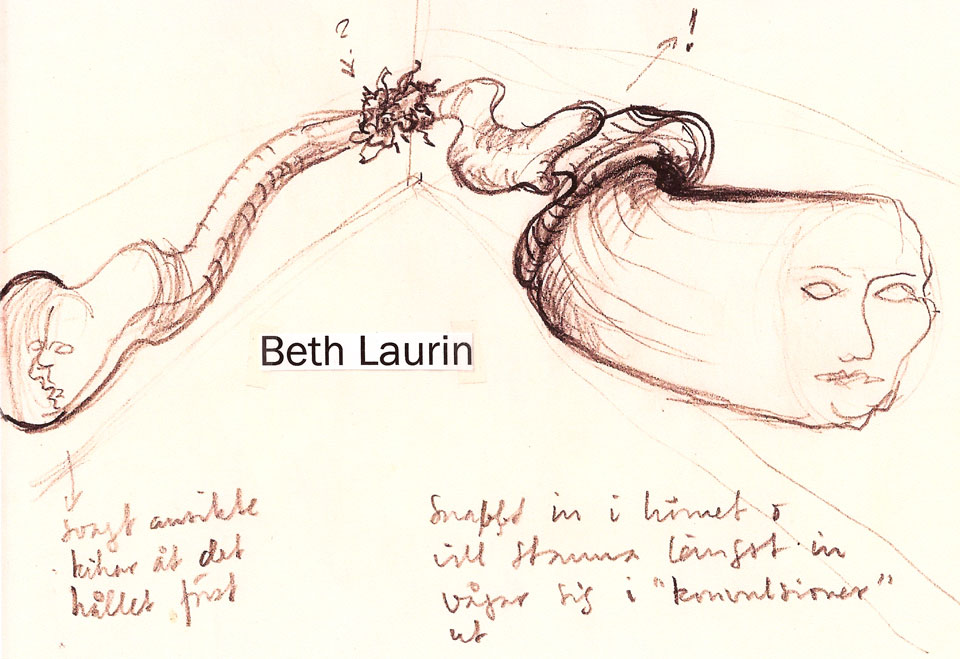 ?
!
Beth Laurin
svagt ansikte
åt det
hållet först
Snabbt in i hörnet o
vill stanna längst in
vågar sig i "konvulsioner"
ut